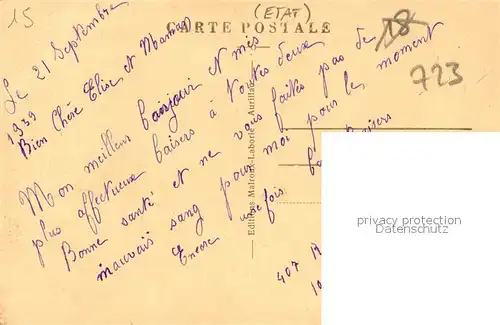 15
(ETAT)
CARTE POSTALE
18
723
Le 21 Septembre
1939
Bien Chère Elise et Maman
Mon meilleur bonjour et mes
plus affectueux baisers à toutes deux
Bonne santé et ne vous faites pas de
mauvais sang pour moi pour le moment
Encore une fois baisers
Editions Malroux-Laborie - Aurillac
407 R
10
privacy protection
Datenschutz